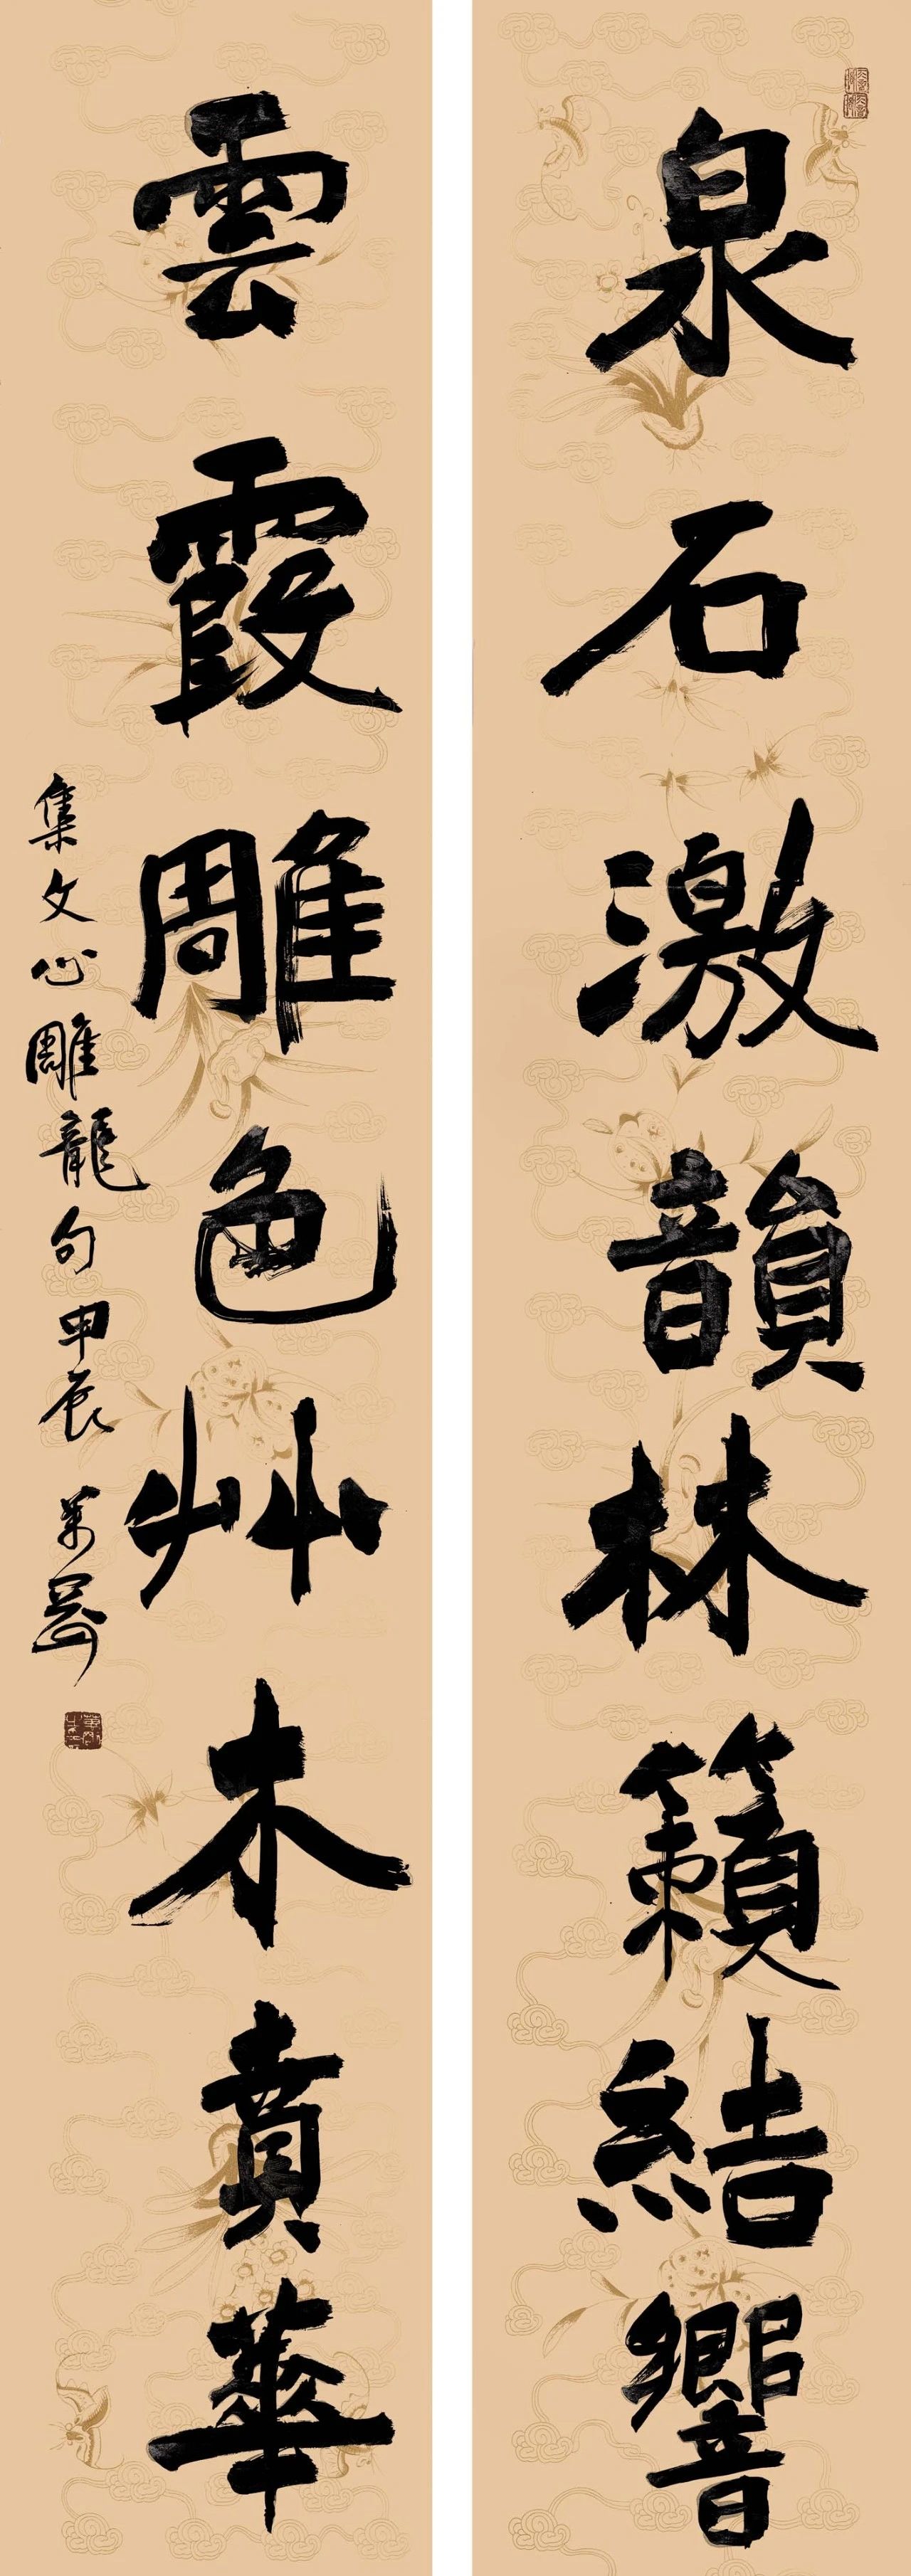 泉石激韻林籟結響
雲霞雕色艸木賁華
集文心雕龍句甲辰